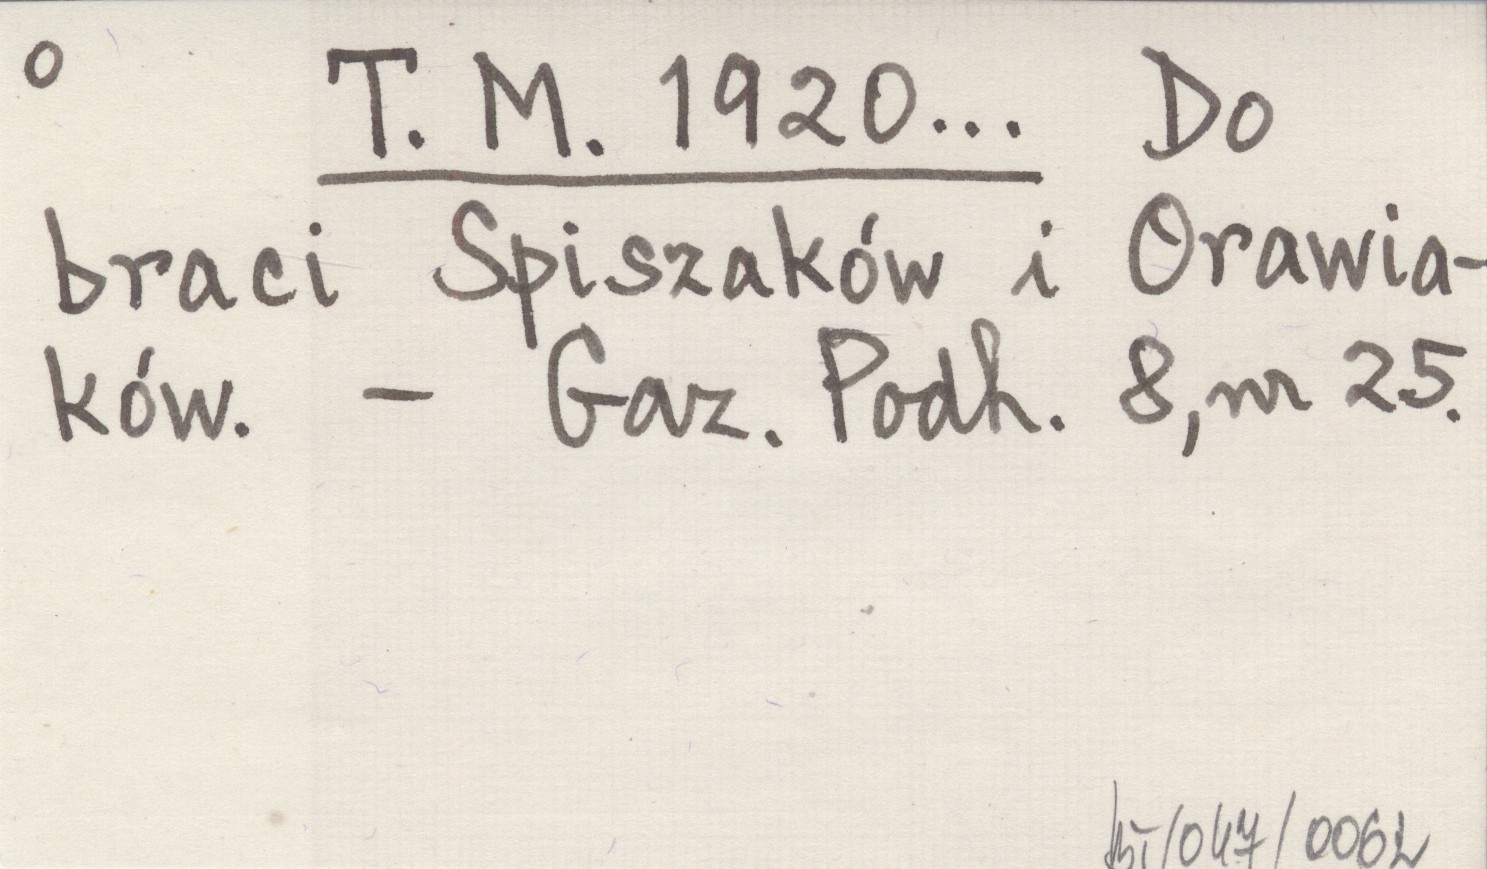 o T. M. 1920... Do
braci Spiszaków i Orawia-
ków. – Gaz. Podh. 8, nr 25.
/047/0062